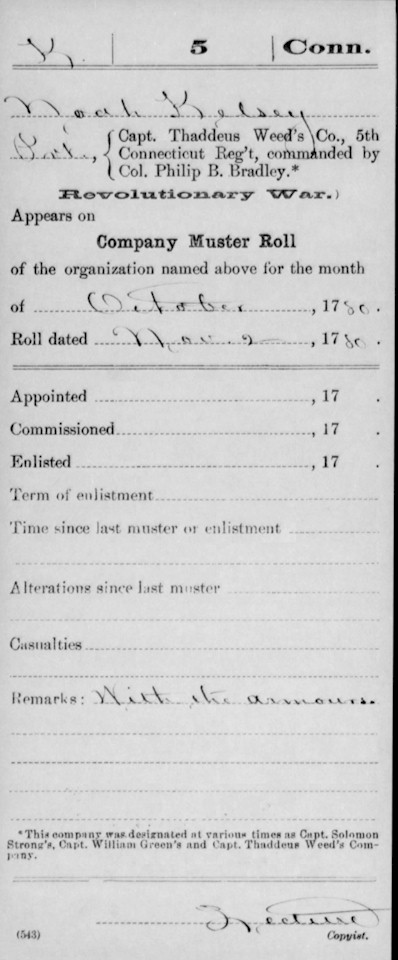 K. | 5 | Conn.
Noah Kelsey
Pvt., { Capt. Thaddeus Weed's Co., 5th
Connecticut Reg't, commanded by
Col. Philip B. Bradley.*
Revolutionary War.)
Appears on
Company Muster Roll
of the organization named above for the month
of October, 1780.
Roll dated Nov 2, 1780.
Appointed , 17 .
Commissioned , 17 .
Enlisted , 17 .
Term of enlistment
Time since last muster or enlistment
Alterations since last muster
Casualties
Remarks: With the armours.
*This company was designated at various times as Capt. Solomon
Strong's, Capt. William Green's and Capt. Thaddeus Weed's Com-
pany.
(543) Copyist.